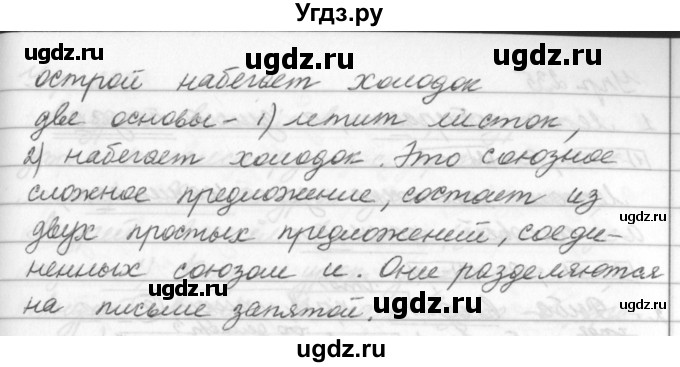 Угдз.ру
ugdz.ru ugdz.ru ugdz.ru
острой набегает холодок
две основы - 1) летит листок,
2) набегает холодок. Это союзное
сложное предложение, состоит из
ugdz.ru
двух простых предложений, соеди-
ugdz.ru ugdz.ru
ненных союзом и. Они разделяются
на письме запятой.
ugdz.ru ugdz.ru
ugdz.ru